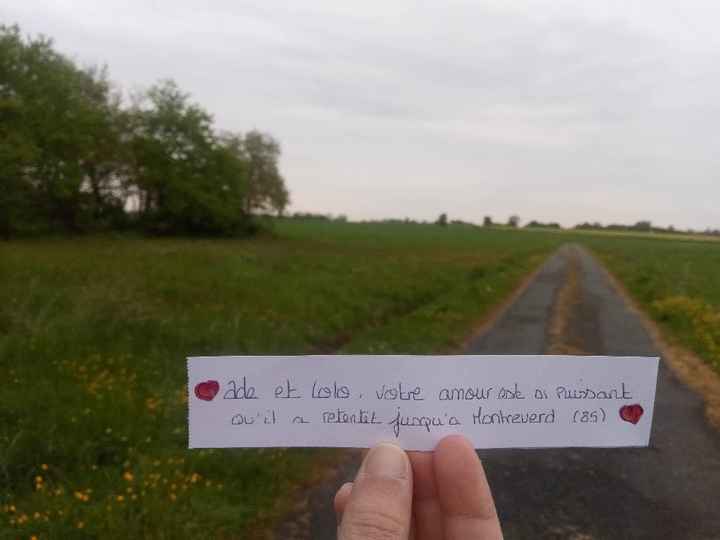 Ada et Lolo, votre amour est si puissant
qu'il a retentit jusqu'a Montreverd (85)